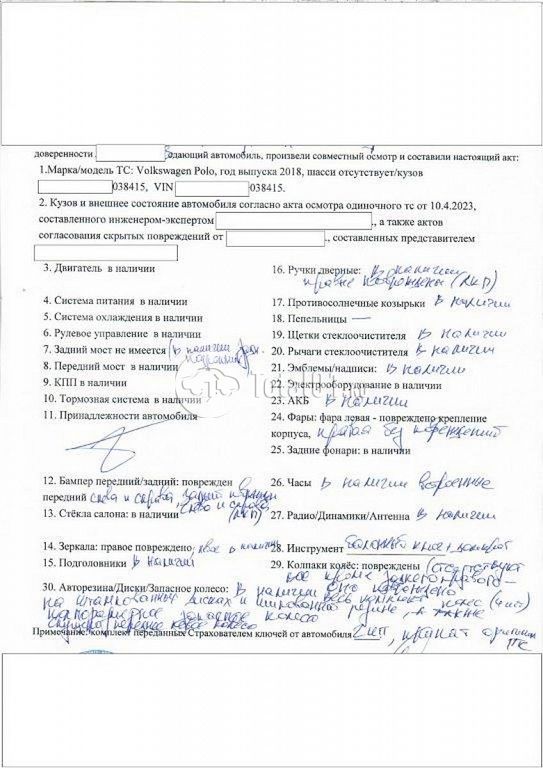 доверенности едающий автомобиль, произвели совместный осмотр и составили настоящий акт:
1.Марка/модель ТС: Volkswagen Polo, год выпуска 2018, шасси отсутствует/кузов
038415, VIN 038415.
2. Кузов и внешнее состояние автомобиля согласно акта осмотра одиночного тс от 10.4.2023,
составленного инженером-экспертом ., а также актов
согласования скрытых повреждений от ., составленных представителем
3. Двигатель в наличии
4. Система питания в наличии
5. Система охлаждения в наличии
6. Рулевое управление в наличии
7. Задний мост не имеется (в наличии
8. Передний мост в наличии
9. КПП в наличии
10. Тормозная система в наличии
11. Принадлежности автомобиля
12. Бампер передний/задний: поврежден
передний слева и справа задний
слева и справа
13. Стёкла салона: в наличии (ЛКП)
14. Зеркала: правое повреждено, левое в наличии
15. Подголовники в наличии
16. Ручки дверные: в наличии
правые повреждены (ЛКП)
17. Противосолнечные козырьки в наличии
18. Пепельницы —
19. Щетки стеклоочистителя в наличии
20. Рычаги стеклоочистителя в наличии
21. Эмблемы/надписи: в наличии
22. Электрооборудование в наличии
23. АКБ в наличии
24. Фары: фара левая - повреждено крепление
корпуса, правая без повреждений
25. Задние фонари: в наличии
26. Часы в наличии встроенные
27. Радио/Динамики/Антенна в наличии
28. Инструмент балонный ключ + домкрат
29. Колпаки колёс: повреждены (отсутствуют
все кроме заднего правого —
30. Авторезина/Диски/Запасное колесо: в наличии оно повреждено
на штампованных дисках и шипованной резине, а также
запасное колесо
переднее левое колесо
Примечание: комплект переданных Страхователем ключей от автомобиля 2 шт,
Total01.ru